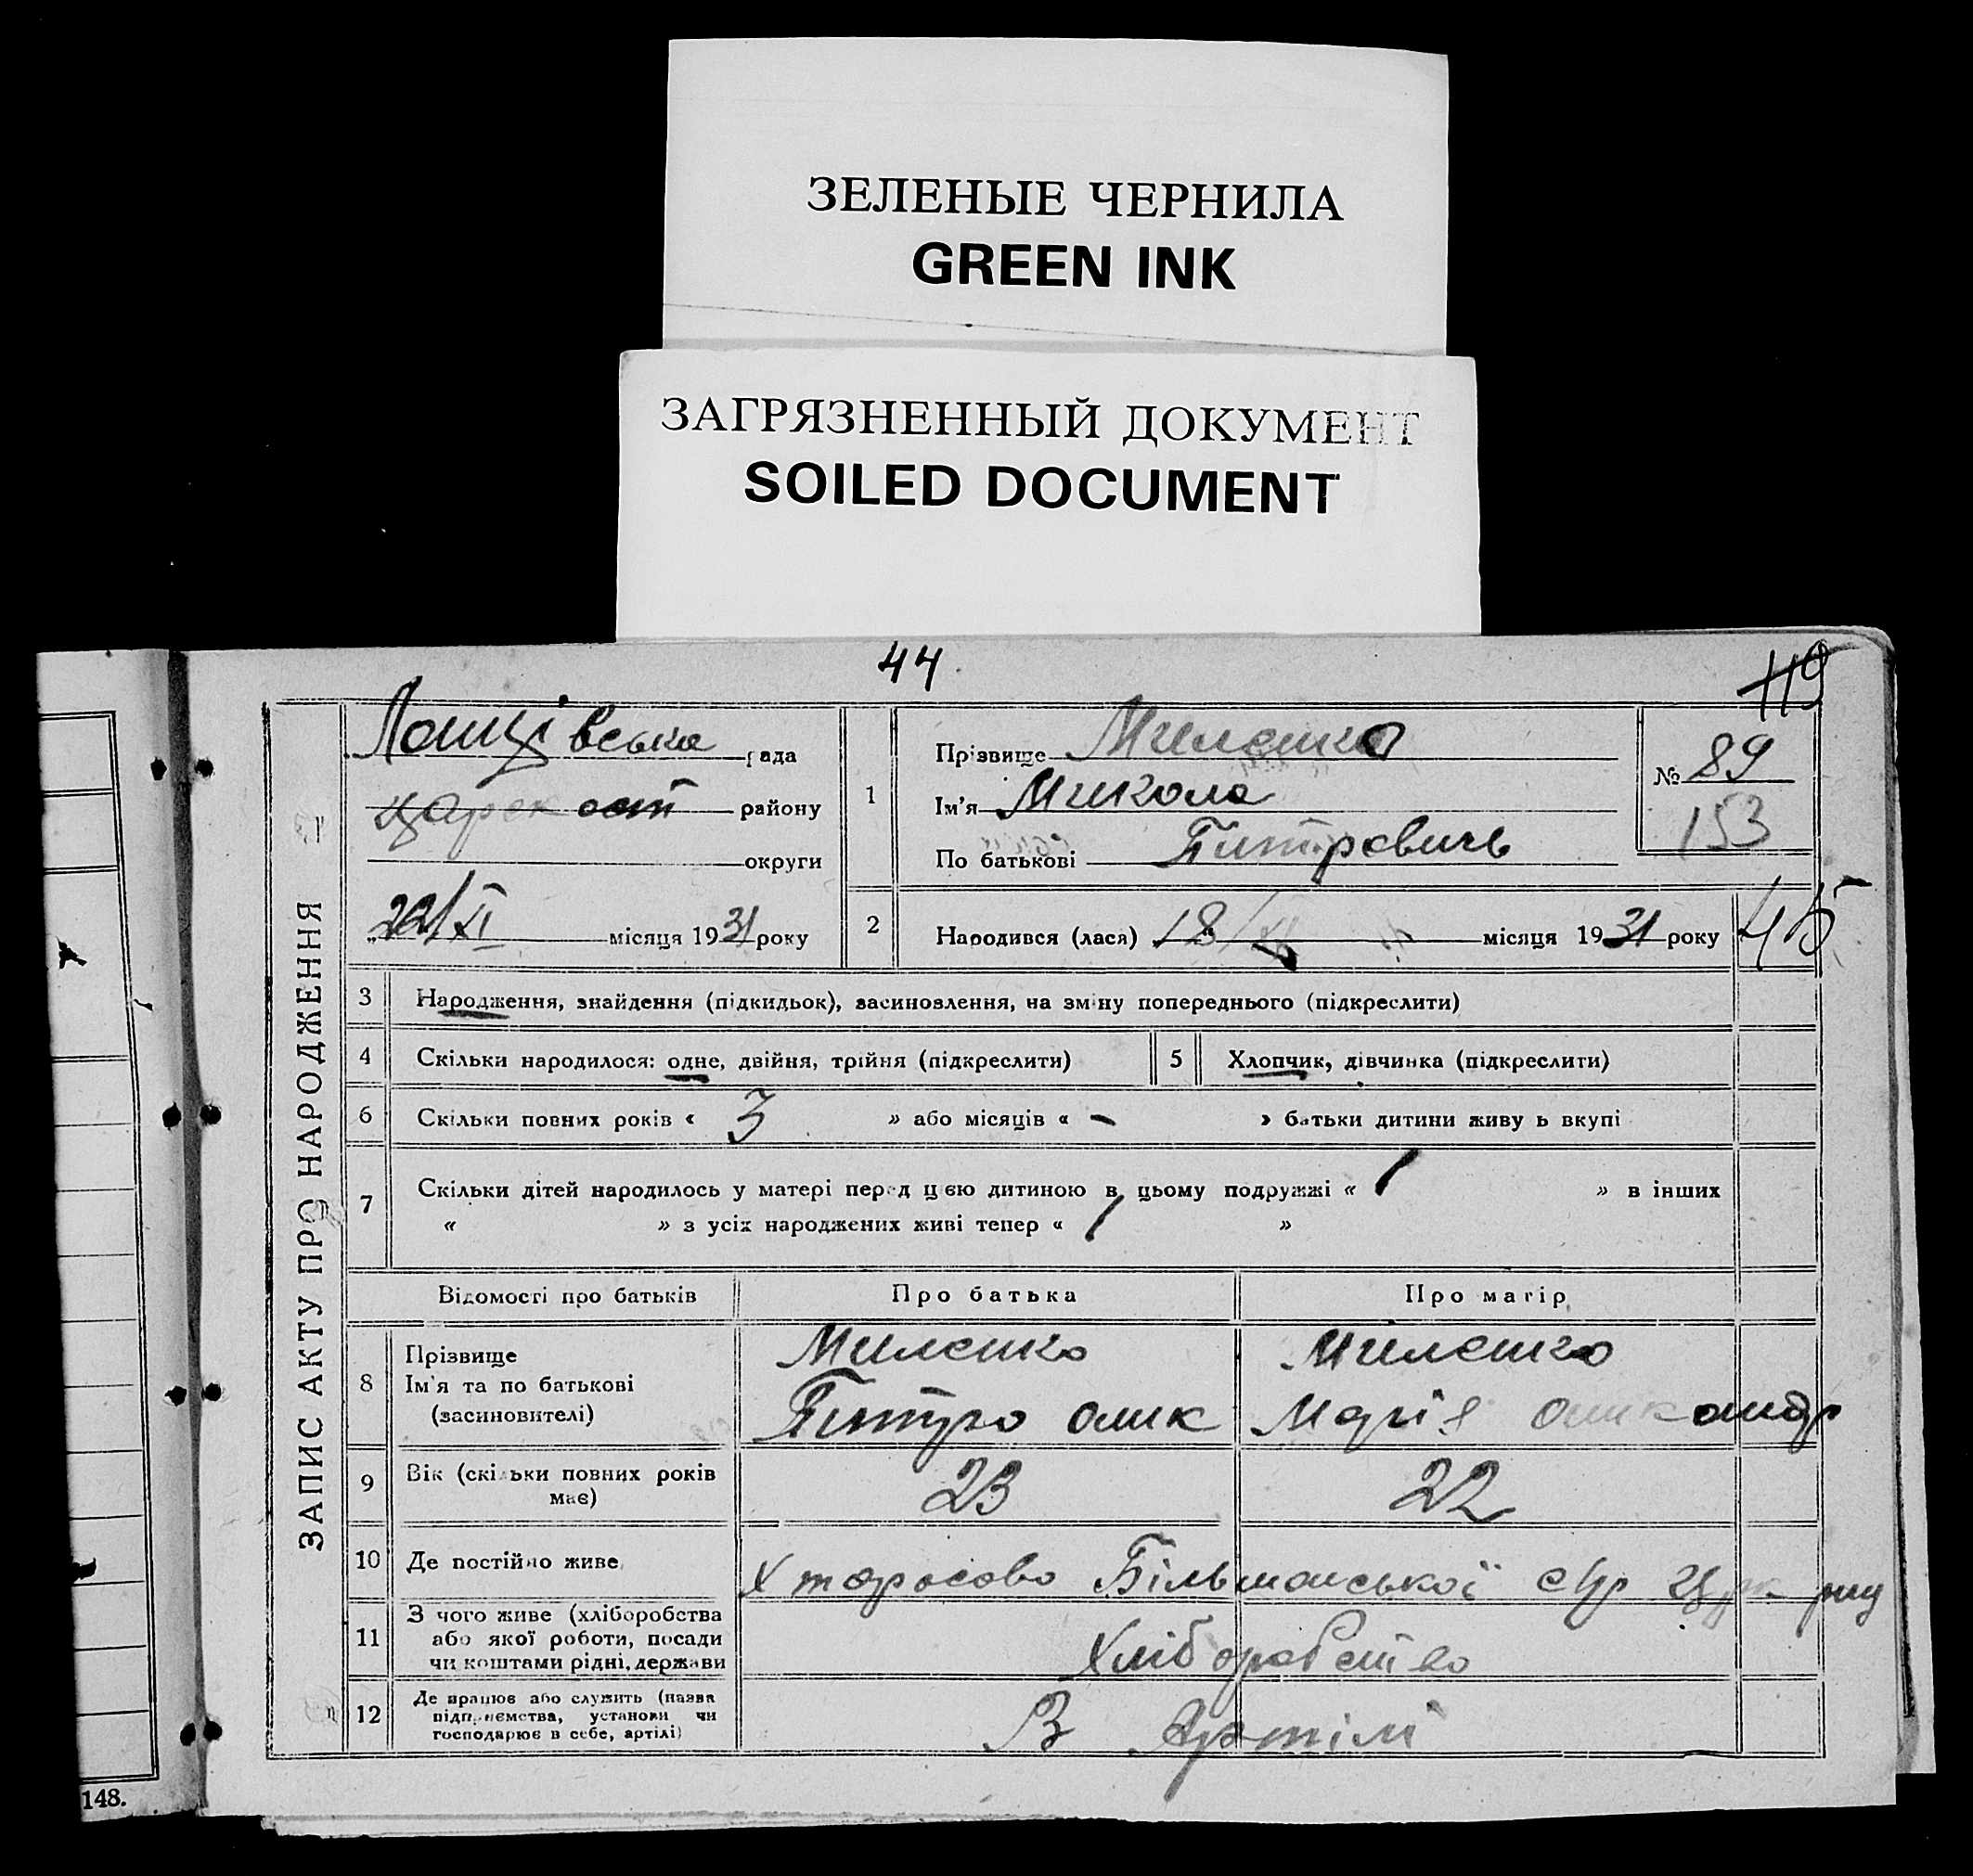 ЗЕЛЕНЫЕ ЧЕРНИЛА
GREEN INK
ЗАГРЯЗНЕННЫЙ ДОКУМЕНТ
SOILED DOCUMENT
44
119
ЗАПИС АКТУ ПРО НАРОДЖЕННЯ
рада
району
округи
22/XI місяця 1931 року
1
Прізвище Миленко
Ім'я Микола
По батькові Питрович
№ 89
153
2
Народився (лася) 18/XI місяця 1931 року
45
3 Народження, знайдення (підкидьок), засиновлення, на зміну попереднього (підкреслити)
4 Скільки народилося: одне, двійня, трійня (підкреслити)
5 Хлопчик, дівчинка (підкреслити)
6 Скільки повних років « 3 » або місяців « – » батьки дитини живуть вкупі
7 Скільки дітей народилось у матері перед цією дитиною в цьому подружжі « 1 » в інших
« » з усіх народжених живі тепер « 1 »
Відомості про батьків Про батька Про матір
8 Прізвище Миленко Миленко
Ім'я та по батькові Питро Марія
(засиновителі)
9 Вік (скільки повних років має) 23 22
10 Де постійно живе Х Тарасово
11 З чого живе (хліборобства
або якої роботи, посади
чи коштами рідні, держави
Хліборобство
12 Де працює або служить (назва
підприємства, установи чи
господарює в себе, артілі)
В Артілі
148.